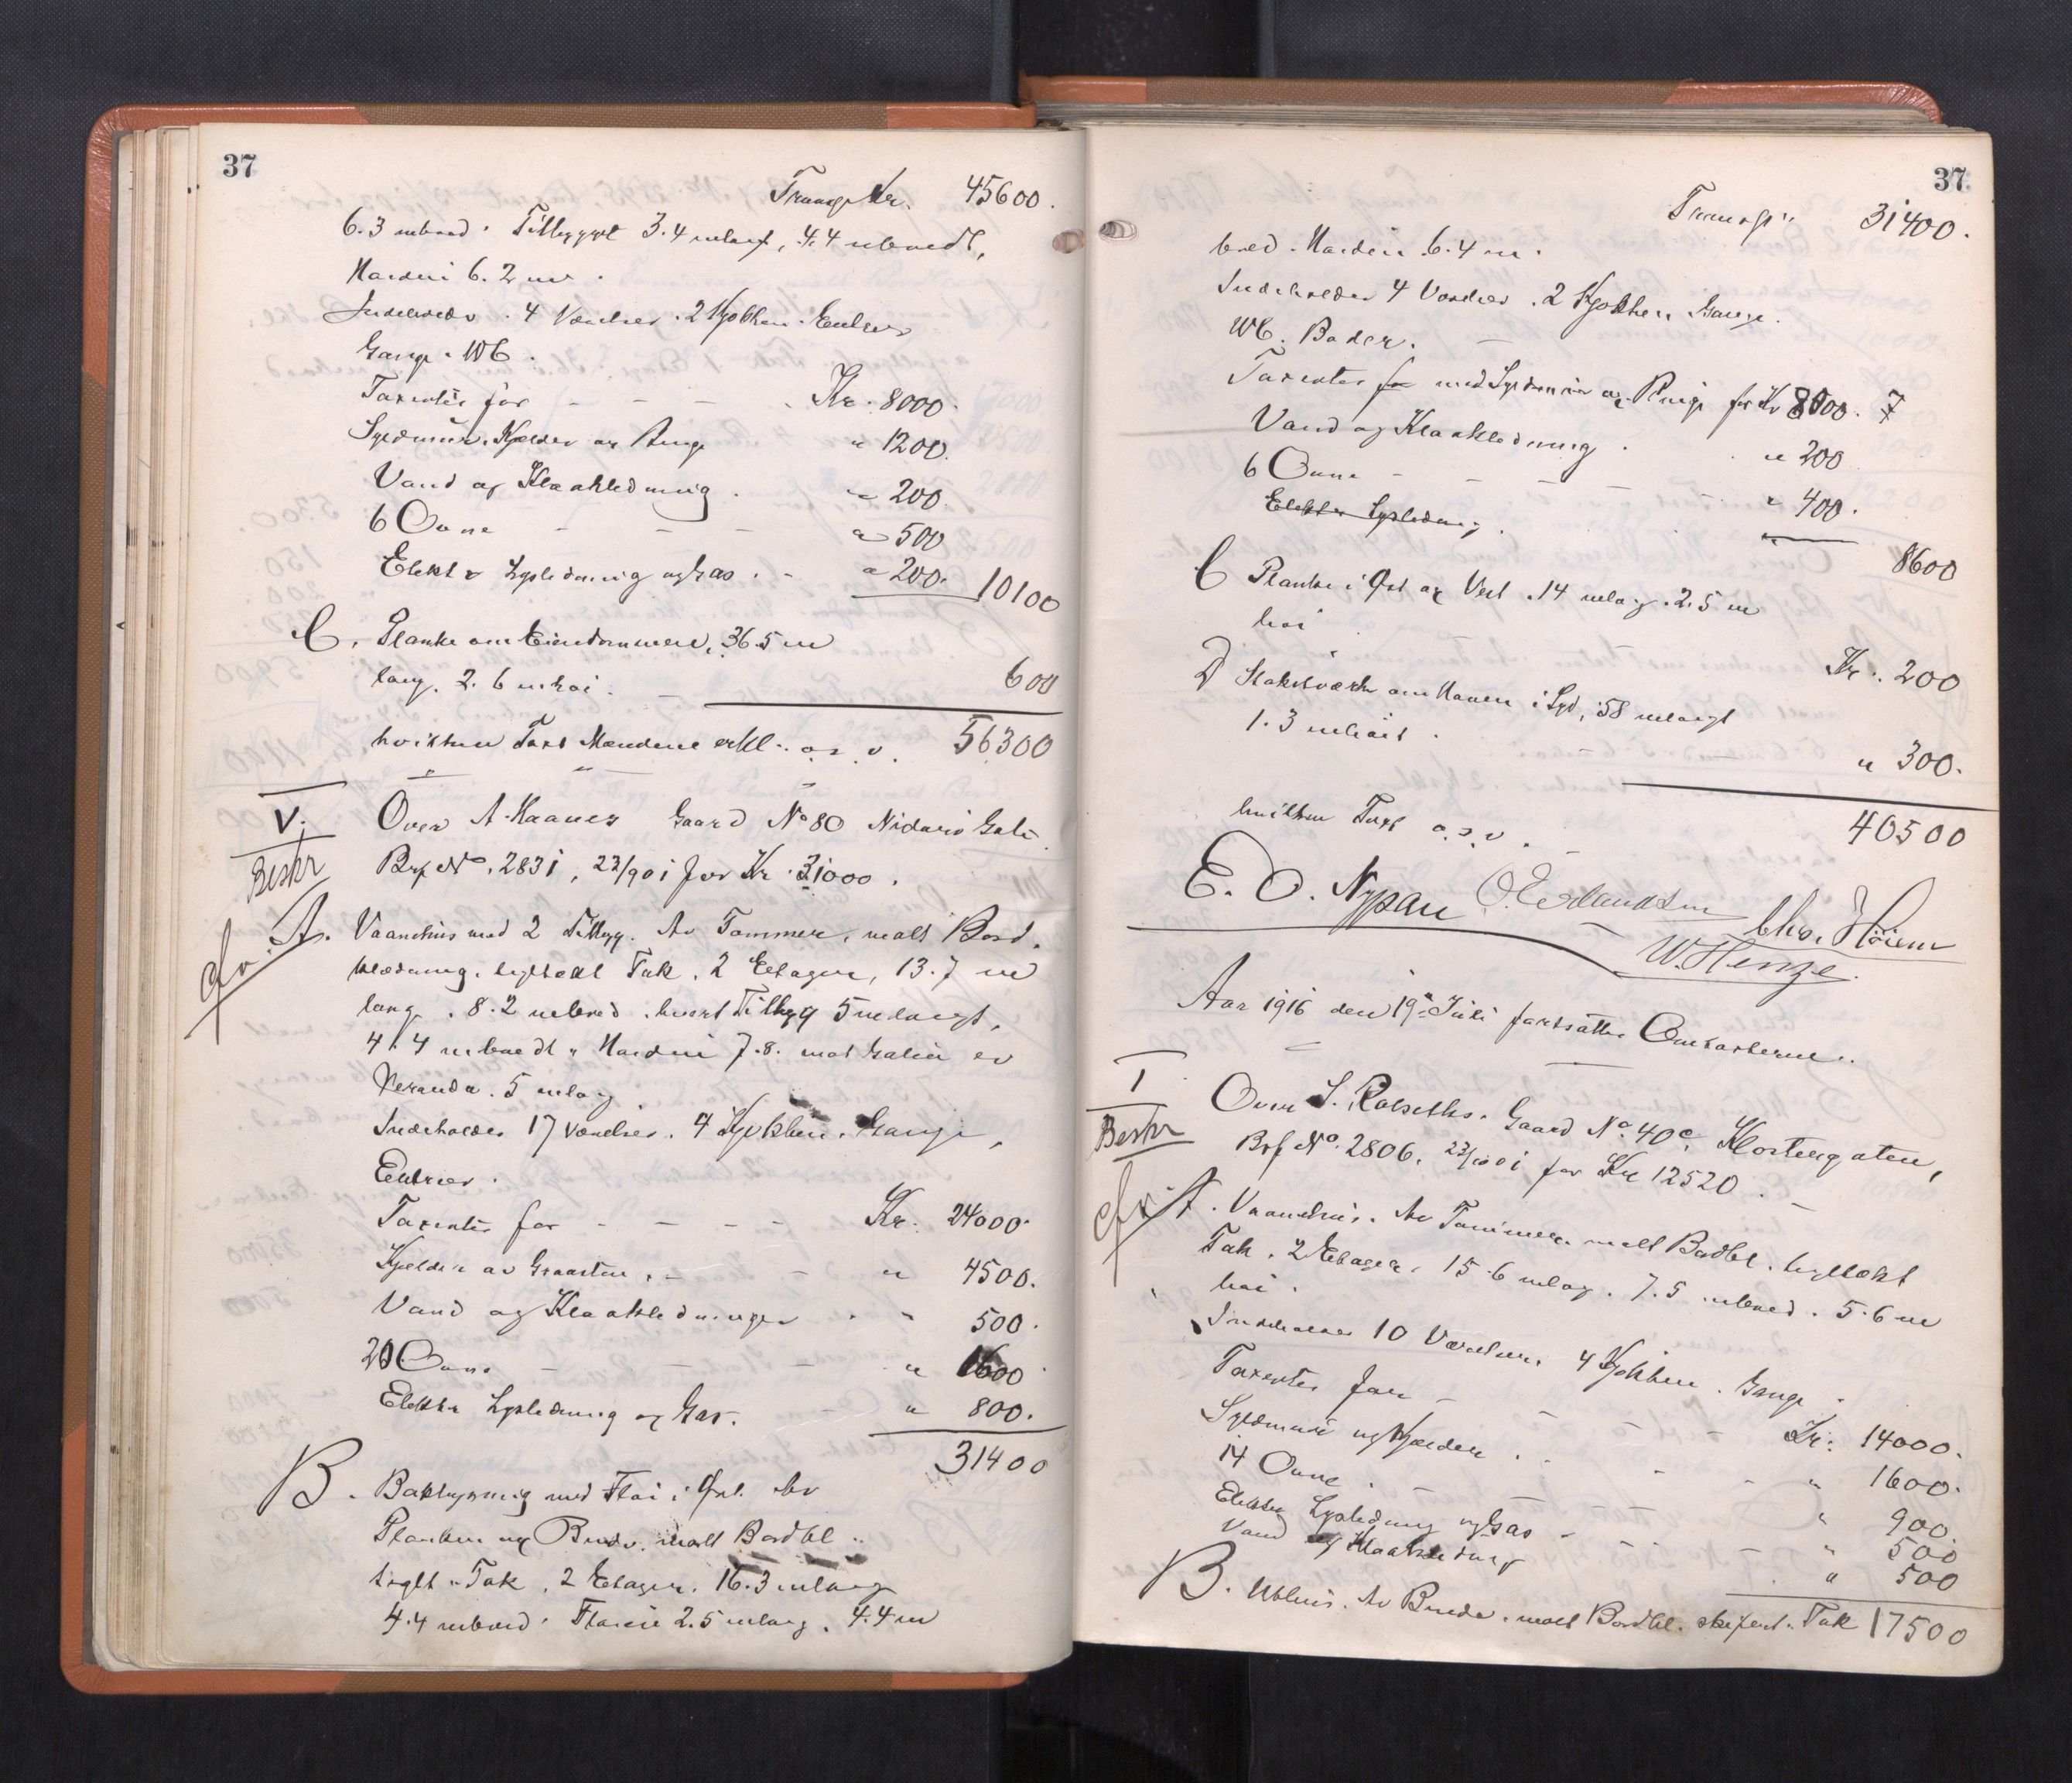 37
Transp Kr. 45600.
6.3 m bred. Tilbygget 3.4 m langt, 4.4 m bredt,
Høiden 6.2 m.
Indeholder 4 Værelser. 2 Kjøkken. Entreer
Gange. WC.
Taxertes for - - - Kr. 8000.
Syldmur. Kjelder og Puge " 1200.
Vand og Kloakledning. " 200.
6 Ovne - - - " 500
Elektr Lysledning og Gas. - " 200. 10100
C. Planke om Eiendommen, 36.5 m
lang. 2.6 m høi. - 600
hvilken Taxt Mændene erkl. o.s.v. 56300
V.
Over A. Kaanes Gaard No 80 Nidarø Gate.
Beskr
Brf No. 2831, 23/901 for Kr. 31000.
A. Vaanehus med 2 Tilbyg. Av Tømmer, malt Bord-
klædning, tegltækt Tak. 2 Etager, 13.7 m
lang. 8.2 m bred. hvert Tilbyg 5 m langt,
4.4 m bredt. Høiden 7.8. mot Gaten er
Veranda. 5 m lang
Indeholder 17 Værelser. 4 Kjøkken. Gange,
Entreer.
Taxertes for - - - - Kr. 24000.
Kjelder av Graasten. - - " 4500.
Vand og Kloakledninger " 500.
20 Ovne - - - " 1600
Elektr Lysledning og Gas. " 800.
31400
B. Bakbygning med Fløi i Øst. Av
Planker og Bindv. malt Bordkl.
teglt. Tak. 2 Etager. 16.3 m lang
4.4 m bred. Fløien 2.5 m lang. 4.4 m
37
Transp" 31400.
bred. Høiden 6.4 m.
Indeholder 4 Værelser. 2 Kjøkken Gange.
WC. Boder. -
Taxertes for med Syldmur og Puge for Kr 8000.
Vand og Kloakledning. " 200
6 Ovne - - - - " 400.
Elektr Lysledning.
8600
C Planke i Øst og Vest. 14 m lang. 2.5 m
høi
Kr. 200
D Stakitværk om Haven i Syd, 58 m langt
1.3 m høit.
" 300.
hvilken Taxt o.s.v. - 40500
E. O. Nypan O. Erlandsen Chr. Høiem
W. Henze.
Aar 1916 den 19de Juli fortsattes Omtaxterne.
I
Over S. Rolseths. Gaard No. 40c Klostergaten,
Beskr
Brf No. 2806. 23/1001 for Kr 12520. -
A. Vaanehus. Av Tømmer malt Bordkl. tegltækt
Tak. 2 Etager. 15.6 m lang. 7.5 m bred. 5.6 m
høi.
Indeholder 10 Værelser. 4 Kjøkken. Gange.
Taxertes for - - - - Kr. 14000.
Syldmur og Kjelder. " 1600.
14 Ovne " 900.
Elektr Lysledning og Gas - " 500
Vand og Kloakledning " 500
17500
B. Uthus. Av Bindv. malt Bordkl. skifert. Tak